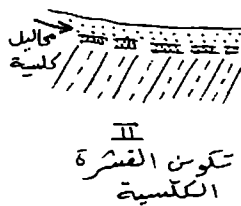 محاليل
كلسية
II
تكون القشرة
الكلسية